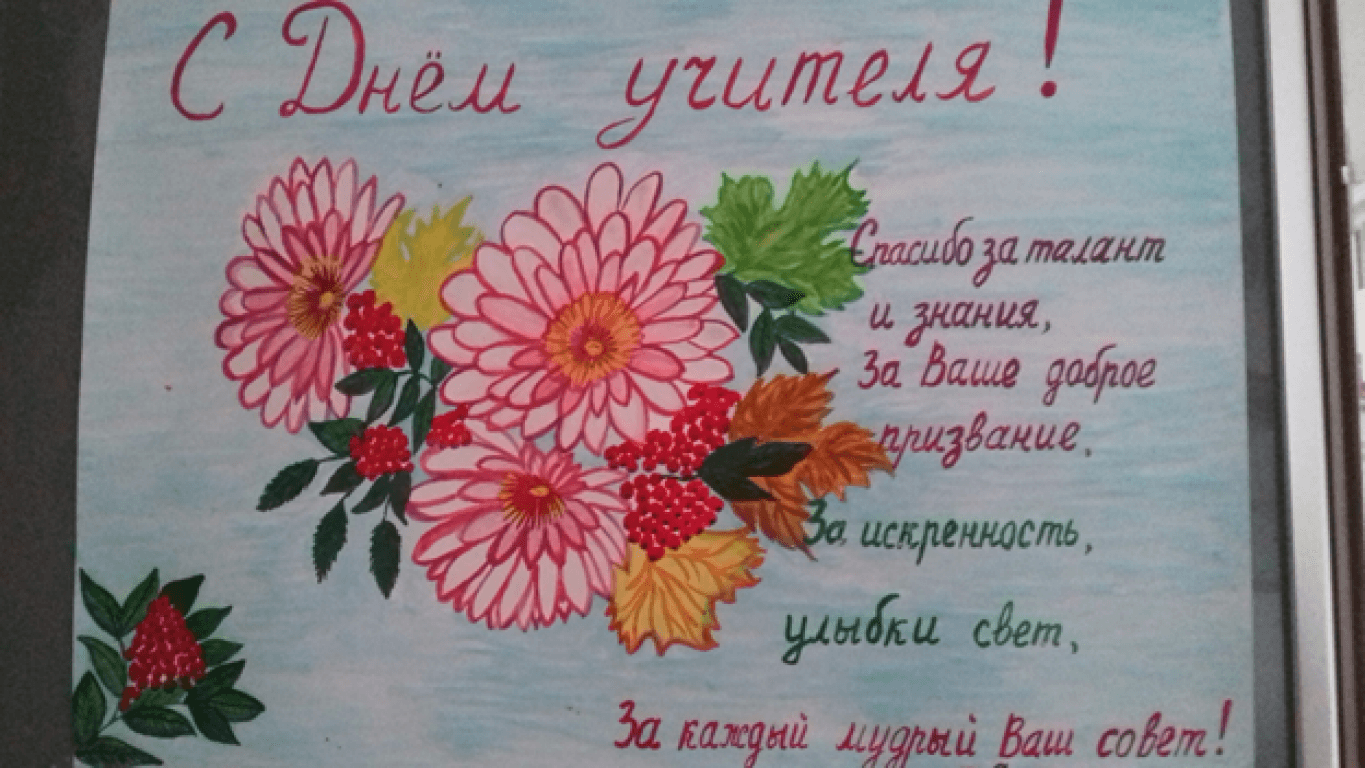 С Днём учителя!
Спасибо за талант
и знания,
За Ваше доброе
призвание,
За искренность,
улыбки свет,
За каждый мудрый Ваш совет!